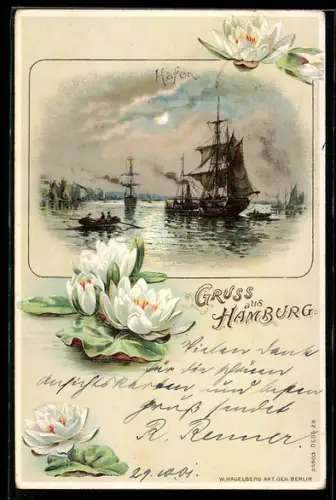 Hafen.
GRUSS
aus
HAMBURG.
Vielen Dank
für die schönen
Ansichtskarten und besten
Gruß sendet
R. Renner.
29.10.01.
W. HAGELBERG AKT. GES. BERLIN
DESS. 28